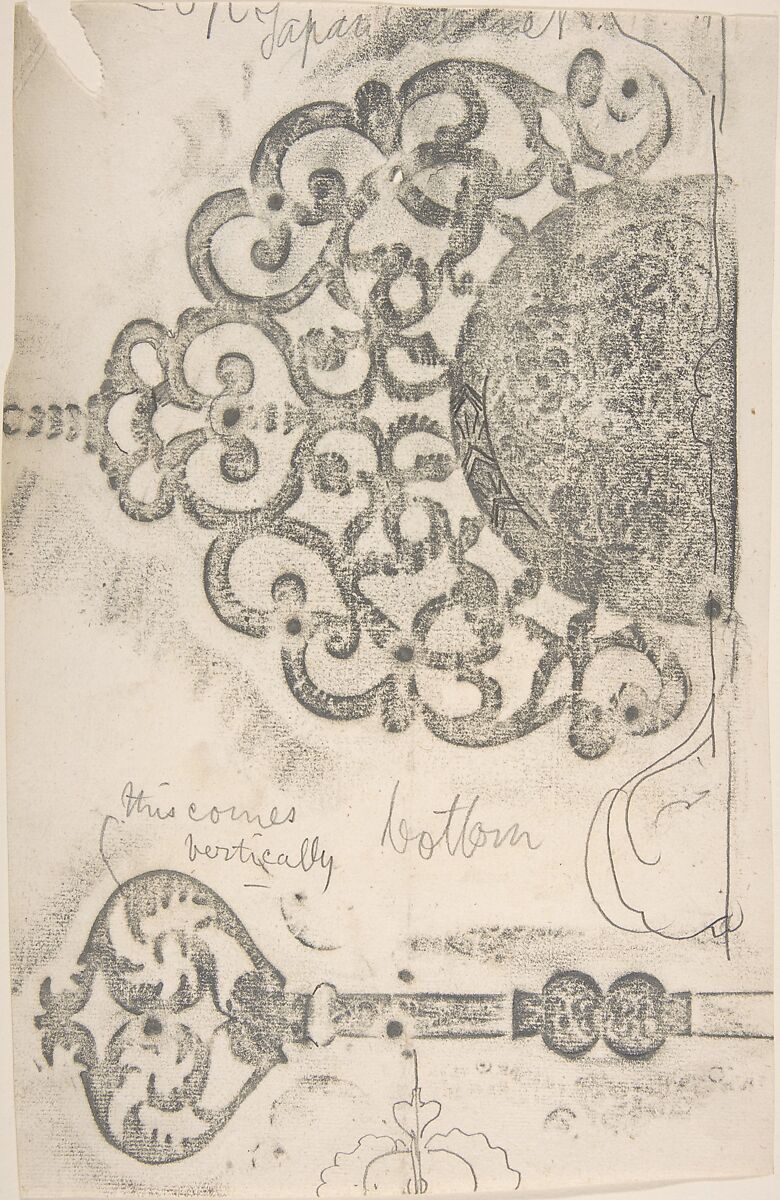 Japan Cabinet
this comes
vertically
bottom